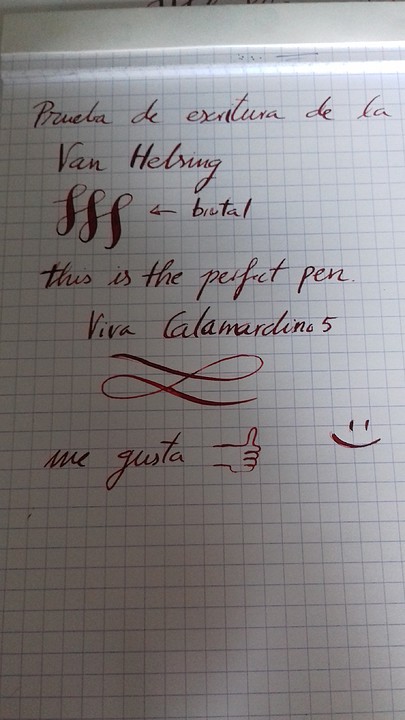 Prueba de escritura de la
Van Helsing
fff ← brutal
this is the perfect pen.
Viva Calamardino5
me gusta